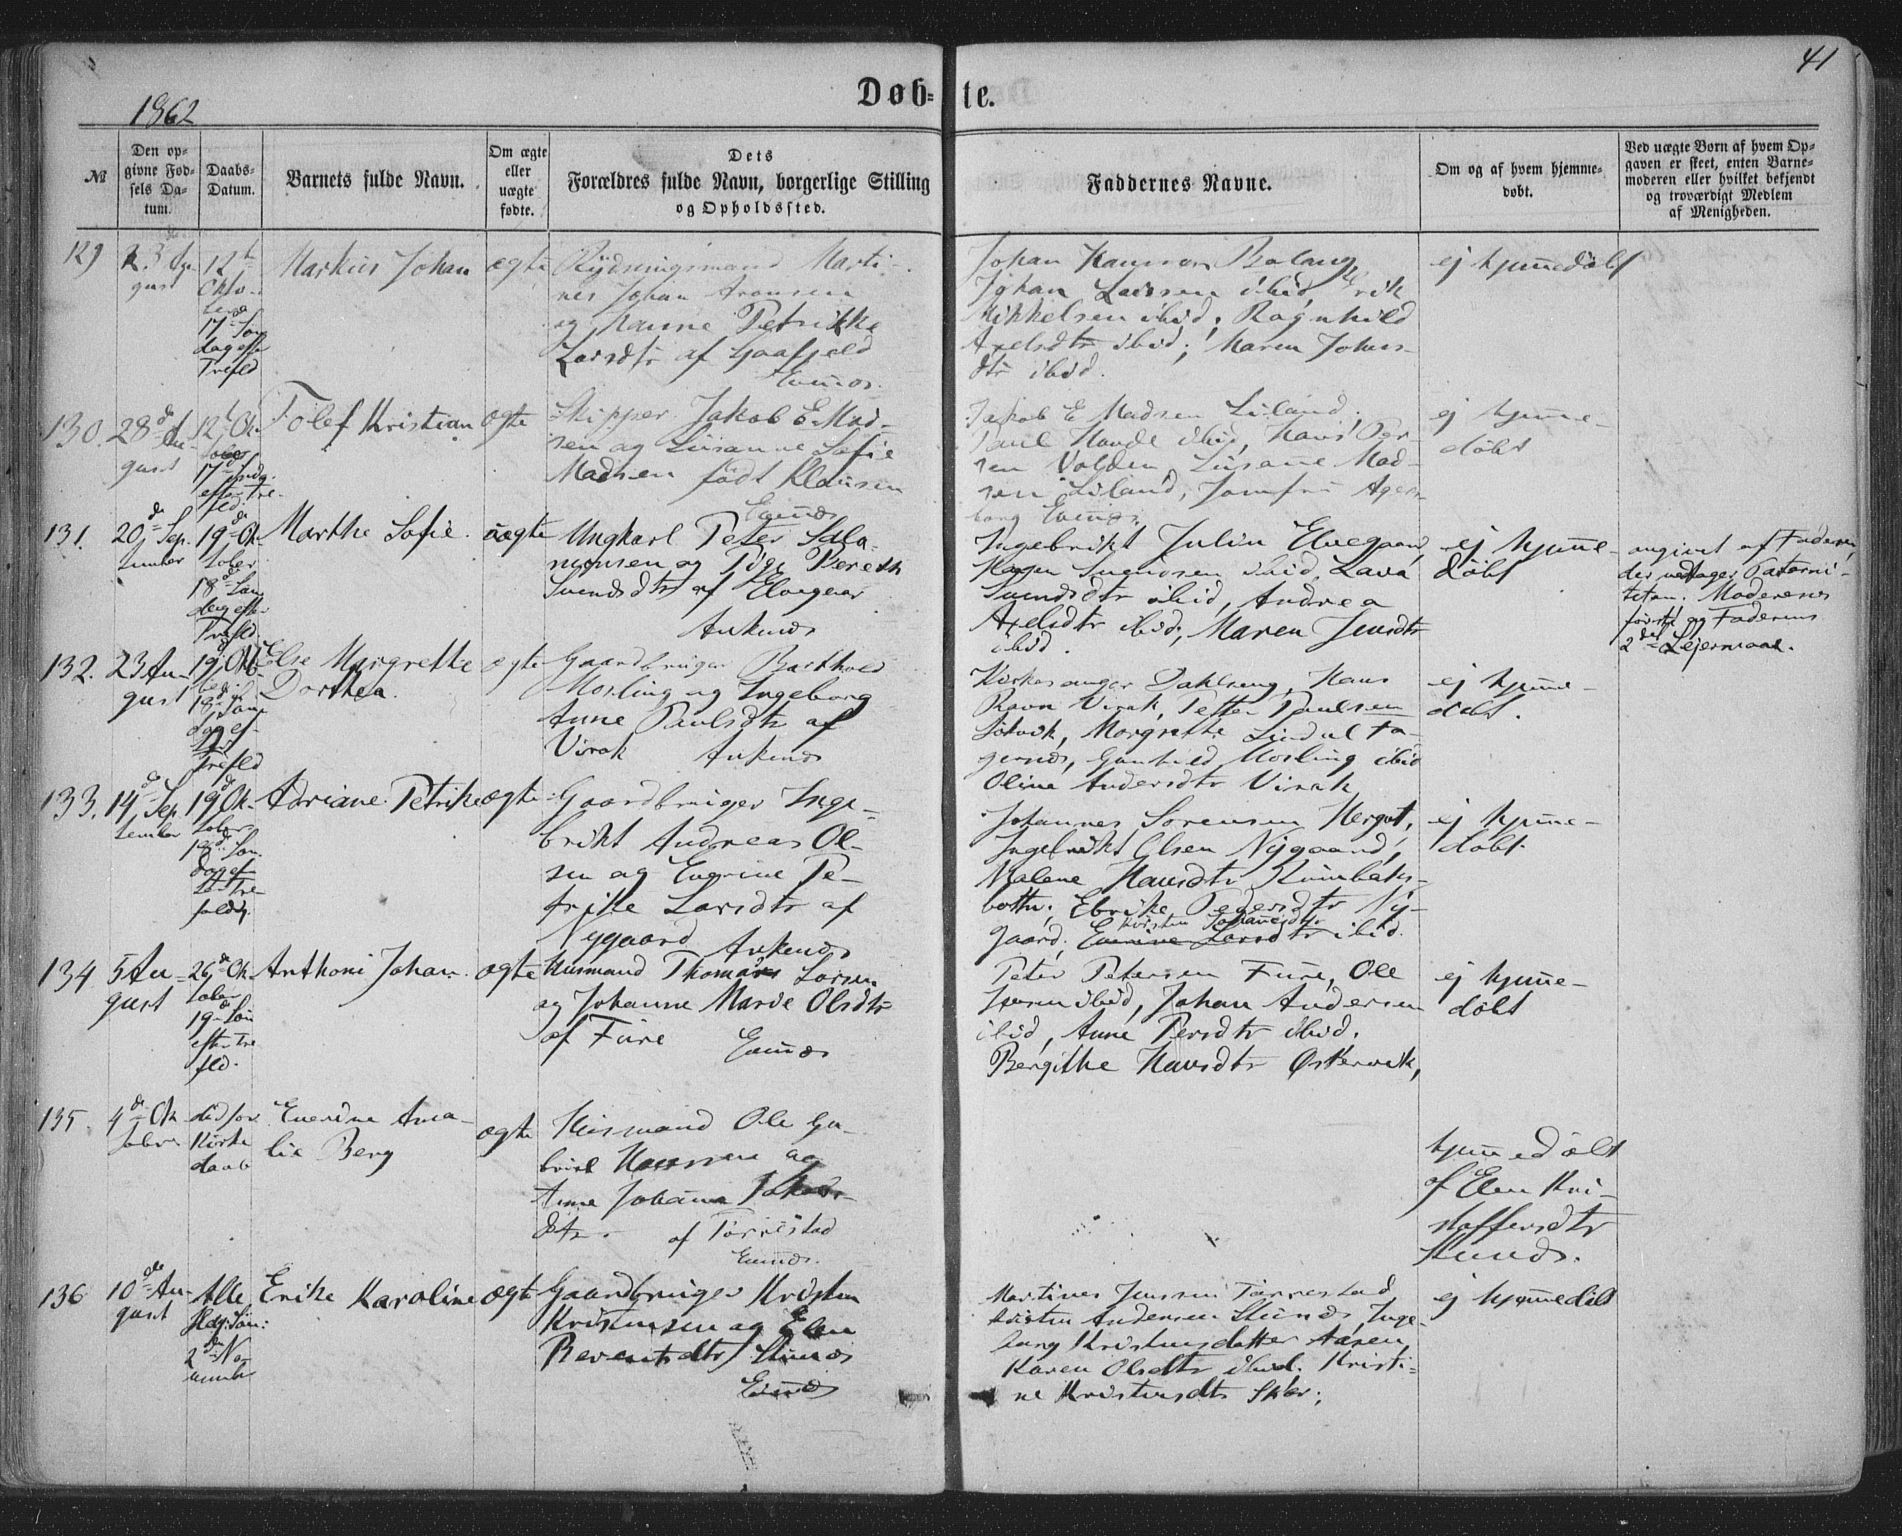 41
1862
Døb-te.
№
Den opgivne Fødsels Datum.
Daabs-Datum.
Barnets fulde Navn.
Om ægte eller uægte fødte.
Dets Forældres fulde Navn, borgerlige Stilling og Opholdssted.
Faddernes Navne.
Om og af hvem hjemmedøbt.
Ved uægte Børn af hvem Opgaven er skeet, enten Barnemoderen eller hvilket bekjendt og troværdigt Medlem af Menigheden.
129
gust
12te
Okto-
17de Søn
dag efter
Trefld
Markus Johan
ægte
Rydningsmand Marti-
nes Johan Aronsen
og Hanne Petrikke
Larsdtr af Gaafjeld
Evenæs.
Johan Hansen Balang
Johan Larsen ibid, Erik
Mikkelsen ibid; Ragnhild
Axelsdtr ibid; Maren Johns-
dtr ibid.
ej hjemmedøbt
130.
28de Au-
gust
12te Ok-
tober
17de Sndg.
efter Tre-
fld
Tolef Kristian
ægte
Skipper Jakob E. Mad-
sen og Susanne Sofie
Madsen født Klausen
Evenæs
Jakob E Madsen Liland,
Paul Hande ibid, Hans Per-
sen Volden, Susane Mad-
sen Liland, Jomfru Agen-
borg Evenæs.
ej hjemme-
døbt
131.
20de Sep.
tember
19de Ok-
tober
18de Søn
dag efter
Trefld.
Marthe Sofie.
uægte
Ungkarl Peter Salo-
monsen og Pige Bereth
Svendsdtr af Elvegaar
Ankenæs
Ingebrikt Julin Elvegaard,
Hagen Svendsen ibid, Lava
Svendsdtr ibid, Andrea
Axelsdtr ibid; Maren Jensdtr
ibid.
ej hjemme-
døbt
angivet af Faderen,
der vedtager Paterni-
teten. Moderens
første og Faderens
2det Lejermaal.
132.
23 Au-
gust
19de Okto
18de Søn
dag ef-
ter
Trefld
Else Margrethe
Dorthea.
ægte
Gaardbruger Barthold
Mosling og Ingeborg
Anne Paulsdtr af
Virak Ankenæs
Kirkesanger Dahlseng, Hans
Ravn Virak, Petter Paulsen
Margrethe Lindul Fa-
gernæs, Gunhild Mosling ibid
Oline Andersdtr Virak
ej hjemme-
døbt.
133.
14de Sep.
tember
19de Ok-
tober
18de Søn.
dag ef-
ter Tre
foldig.
Adriane Petrike
ægte
Gaardbruger Inge-
brikt Andreas Ol-
sen og Everine Pe-
trike Larsdtr af
Nygaard Ankenæs
Johannes Sørensen Hergot,
Ingebrikt Olsen Nygaard,
Malene Hansdtr Kvinbæks-
botn; Ebrike Pedersdtr Ny-
gaard. Kirsten Johannesdtr
Everine Larsdtr ibid.
ej hjemme-
døbt.
134
5 Au-
gust
26de Ok-
tober
19de Søn
efter Tre
fld.
Anthoni Johan.
ægte
Husmand Thomas Larsen
og Johanne Marie Olsdtr
af Fure Evenæs
Peter Petersen Fure, Ole
Iversen ibid, Johan Andersen
ibid, Anne Persdtr ibid.
Bergithe Hansdtr Østervik,
ej hjemme-
døbt
135.
4de Ok
tober
død før
Kirke
daab
Everdine Ama-
lie Berg
ægte
Husmand Ole Ga-
briel Hansen og
Anne Johanna Jakobs-
dtr. af Tørrestad
Evenæs.
hjemmedøbt
af Elen Kri-
stoffersdtr
Stunæs.
136
10de Au-
gust
Alle
Helg. Søn:
2de No-
vember
Erike Karoline
ægte
Gaardbruger Kristen
Kristensen og Elen
Berentsdtr Stunæs
Evenæs
Martines Jensen Tørrestad
Kristen Andersen Stunæs, Inge-
borg Kristensdatter Aasen,
Karen Olsdtr ibid. Kristi-
ne Kristensdtr Skar;
ej hjemmedøbt